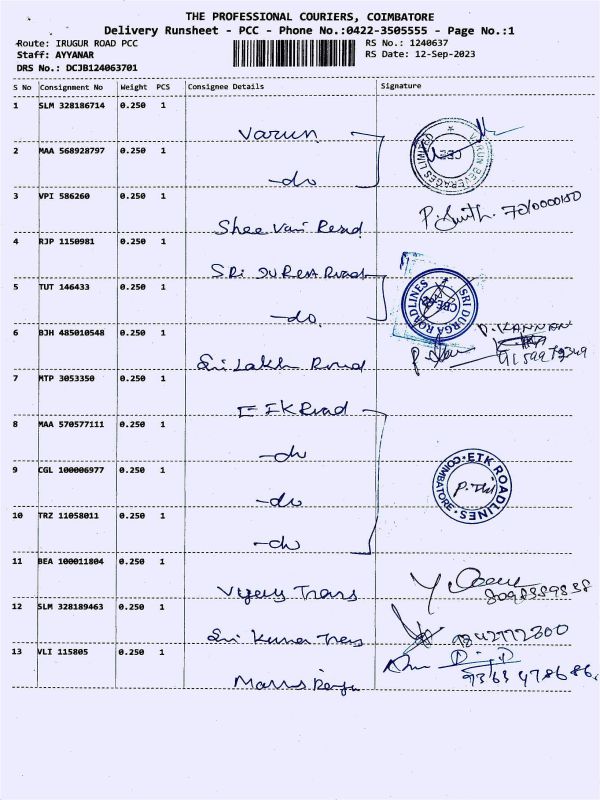 THE PROFESSIONAL COURIERS, COIMBATORE
Delivery Runsheet - PCC - Phone No.:0422-3505555 - Page No.:1
Route: IRUGUR ROAD PCC RS No.: 1240637
Staff: AYYANAR RS Date: 12-Sep-2023
DRS No.: DCJB124063701
S No Consignment No Weight PCS Consignee Details Signature
1 SLM 328186714 0.250 1
Varun
VARUN BEVERAGES LIMITED CBE
2 MAA 568928797 0.250 1
-do
3 VPI 586260 0.250 1
Shee Vari Road
4 RJP 1150981 0.250 1
SRi Road
5 TUT 146433 0.250 1
-do.
SRI DURGA ROADLINES
6 BJH 485010548 0.250 1
Sri Lakh Road
P. KANNAN
7 MTP 3053350 0.250 1
8 MAA 570577111 0.250 1
-do
9 CGL 100006977 0.250 1
-do
ETK ROADLINES COIMBATORE
10 TRZ 11058011 0.250 1
-do
11 BEA 100011804 0.250 1
Vijay Trans
12 SLM 328189463 0.250 1
Sri Kumar Trans
13 VLI 115805 0.250 1